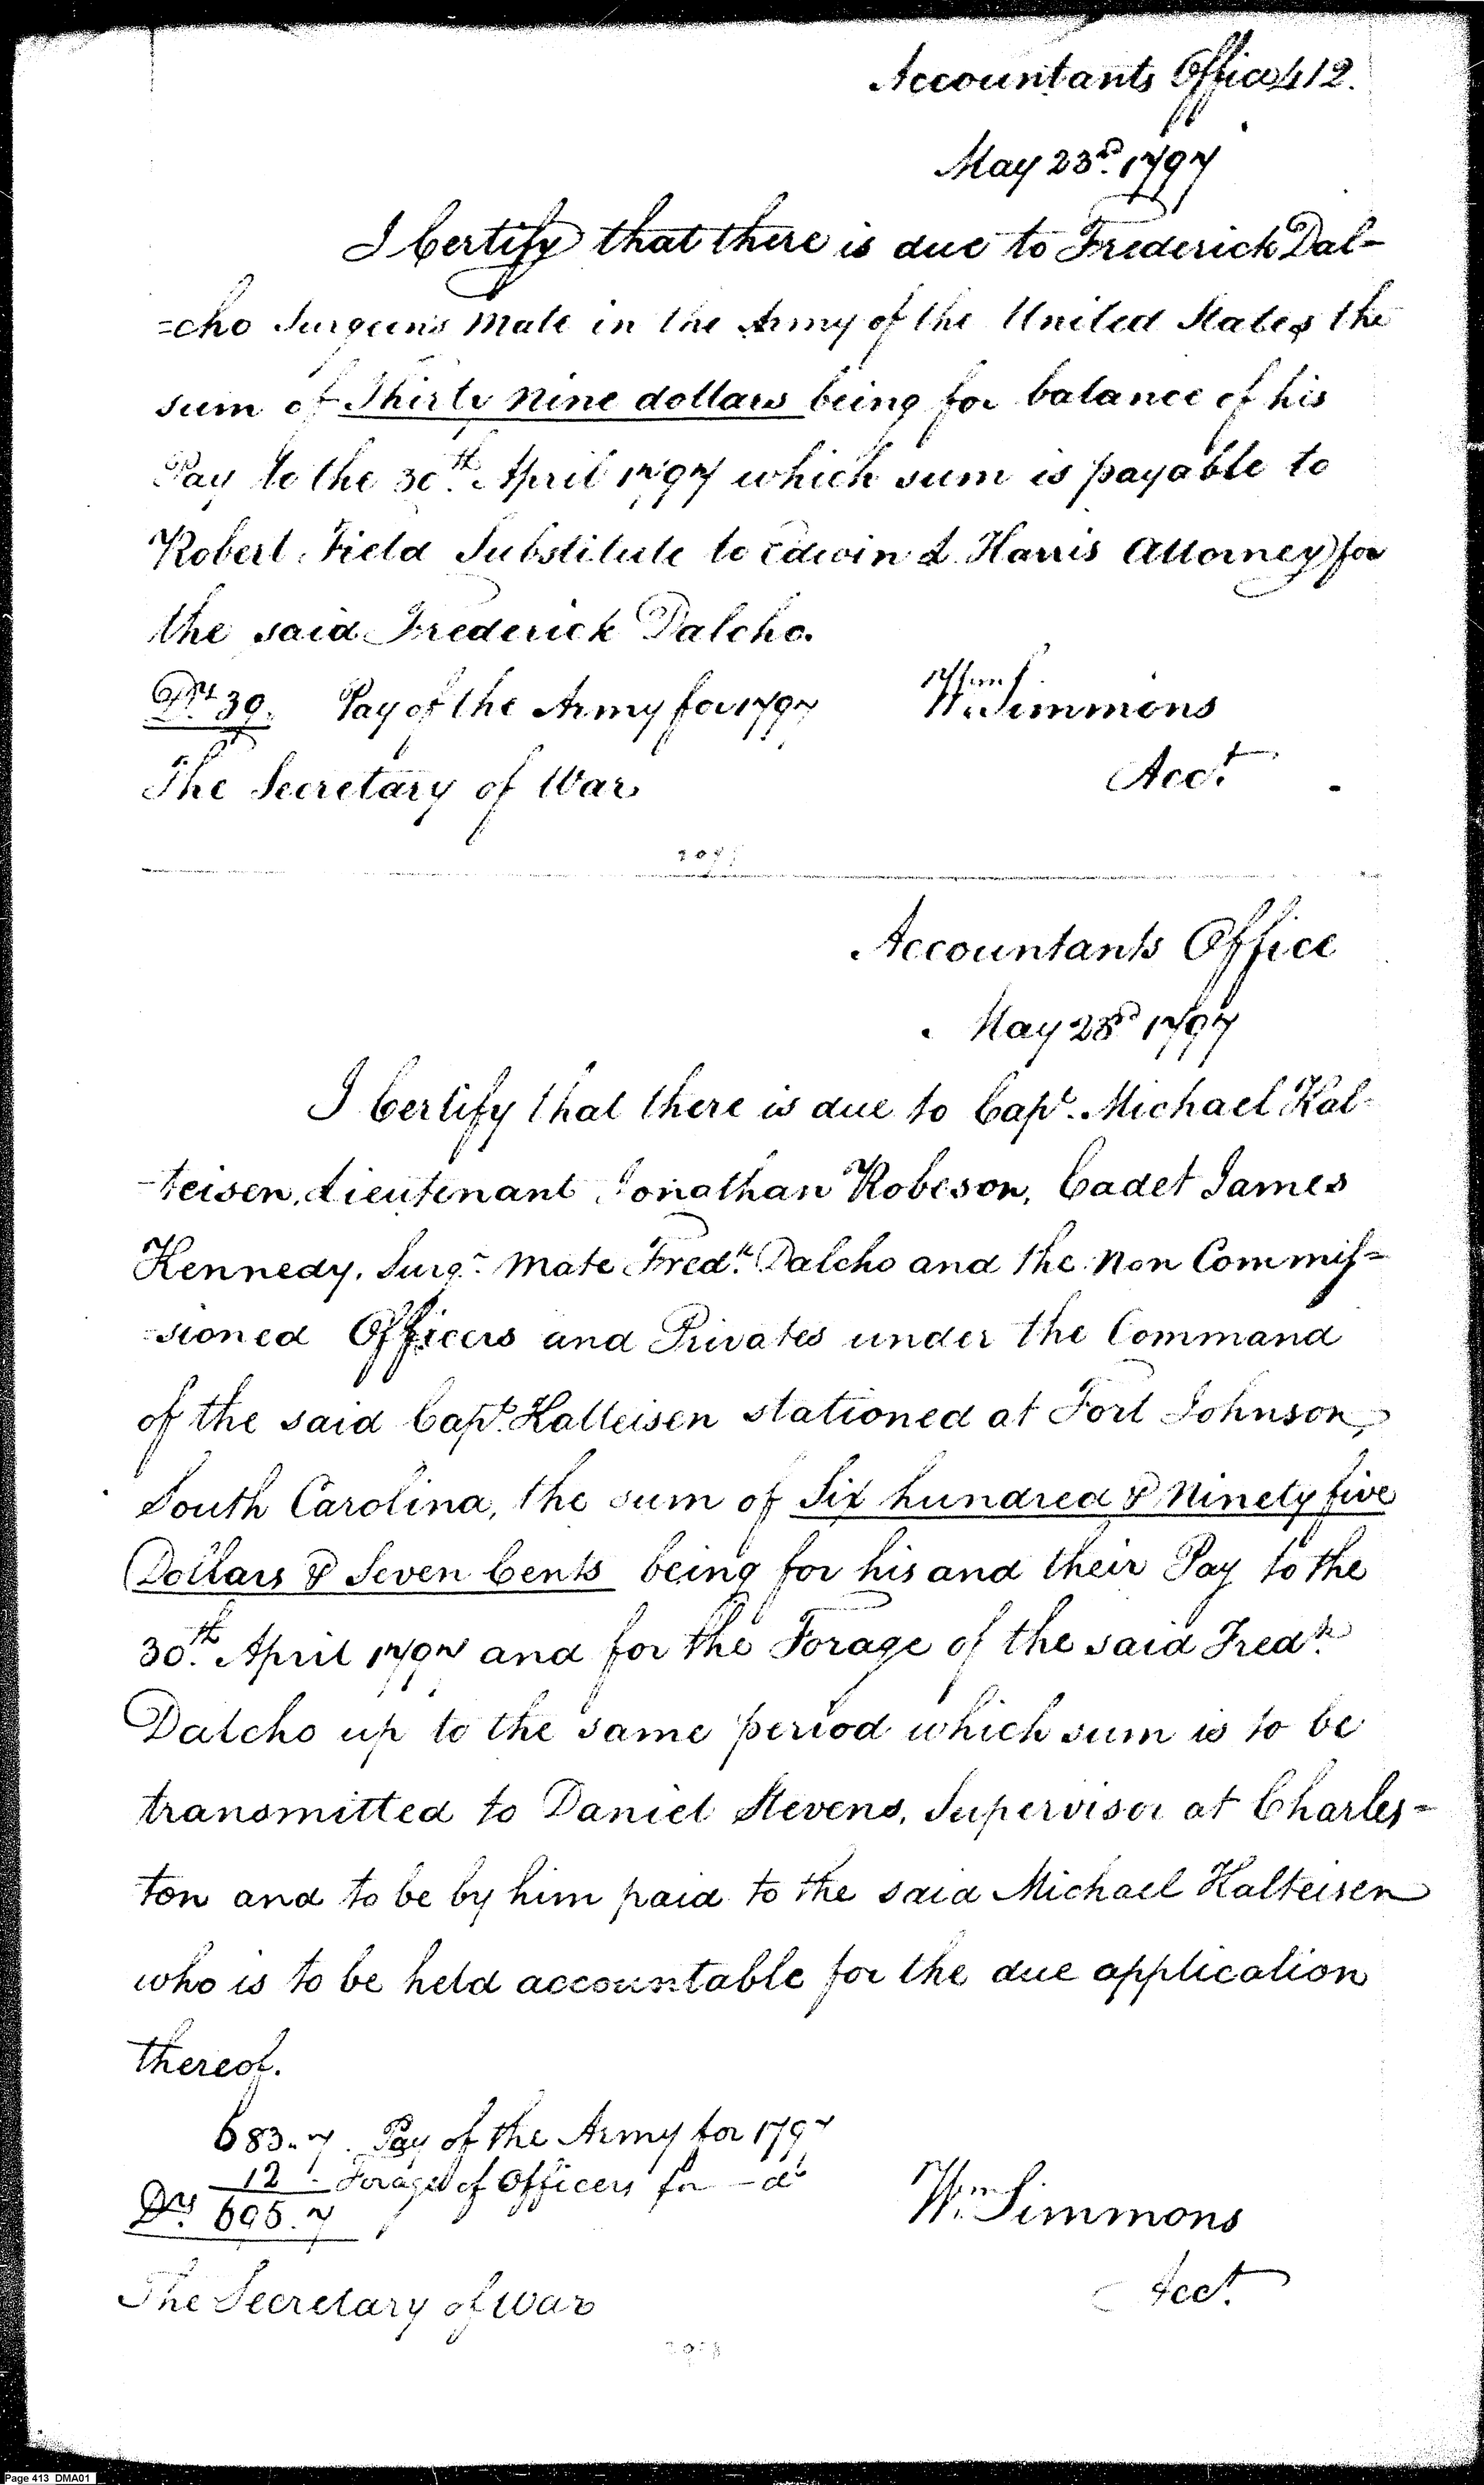 Accountants Office 412.
May 23d. 1797
I Certify that there is due to Frederick Dal-
=cho Surgeons Mate in the Army of the United States the
sum of Thirty Nine dollars being for balance of his
Pay to the 30th. April 1797 which sum is payable to
Robert Field Substitute to Edwin L Harris Attorney for
the said Frederick Dalcho.
Drs 39. Pay of the Army for 1797
Wm. Simmons
The Secretary of War
Acct.
Accountants Office
May 23d 1797
I Certify that there is due to Capt. Michael Kal-
-teisen, Lieutenant Jonathan Robeson, Cadet James
Kennedy, Surgn. Mate Fredk. Dalcho and the Non Commis=
-sioned Officers and Privates under the Command
of the said Capt. Kalteisen stationed at Fort Johnson,
South Carolina, the sum of Six hundred & Ninety five
Dollars & Seven Cents being for his and their Pay to the
30th. April 1797 and for the Forage of the said Fredk.
Dalcho up to the same period which sum is to be
transmitted to Daniel Stevens, Supervisor at Charles=
ton and to be by him paid to the said Michael Kalteisen
who is to be held accountable for the due application
thereof.
683.7. Pay of the Army for 1797
12 - Forage of Officers for - do
Drs. 695.7
Wm. Simmons
Acct.
The Secretary of War
Page 413 DMA01